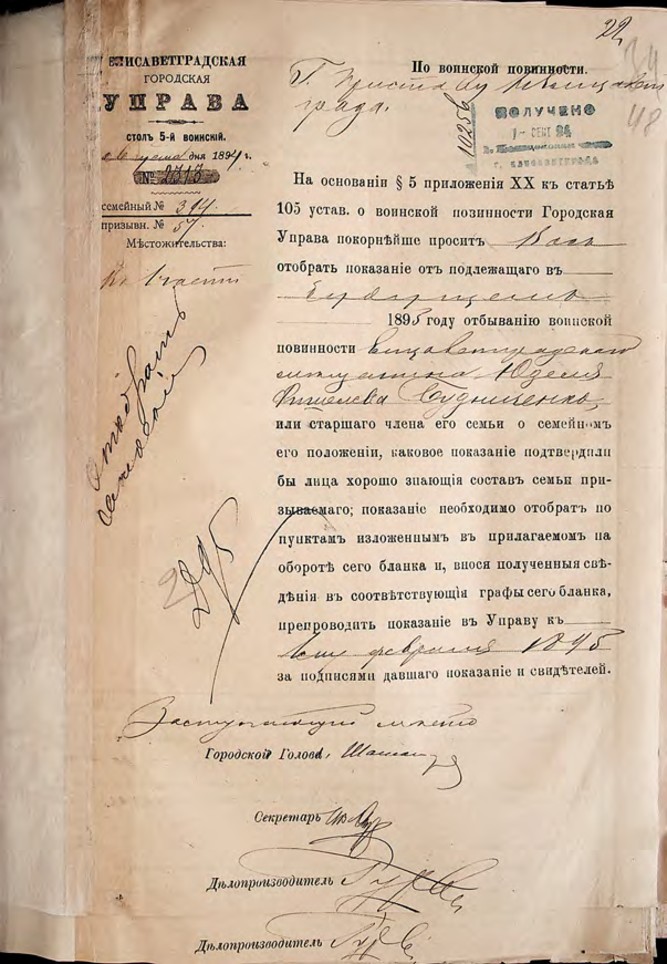 22
34
48
ЕЛИСАВЕТГРАДСКАЯ
ГОРОДСКАЯ
УПРАВА
СТОЛЪ 5-й ВОИНСКІЙ.
дня 1894 г.
№ 2313
семейный № 394
призывн. № 57
Мѣстожительства:
части
Отобрать
2295
По воинской повинности.
Г. Приставу
града.
10256
ПОЛУЧЕНО
1- СЕНТ 94
Г. ЕЛИСАВЕТГРАДА
На основаніи § 5 приложенія XX къ статьѣ
105 устав. о воинской позинности Городская
Управа покорнѣйше проситъ Васъ
отобрать показаніе отъ подлежащаго въ
1895 году отбыванію воинской
повинности Елисаветградскаго
мѣщанина Юделя
или старшаго члена его семьи о семейномъ
его положеніи, каковое показаніе подтвердили
бы лица хорошо знающія составъ семьи при-
зываемаго; показаніе необходимо отобрать по
пунктамъ изложеннымъ въ прилагаемомъ на
оборотѣ сего бланка и, внося полученныя свѣ-
дѣнія въ соотвѣтствующія графы сего бланка,
препроводить показаніе въ Управу къ
февраля 1895
за подписями давшаго показаніе и свидѣтелей.
Заступающій мѣсто
Городской Голова,
Секретарь
Дѣлопроизводитель
Дѣлопроизводитель